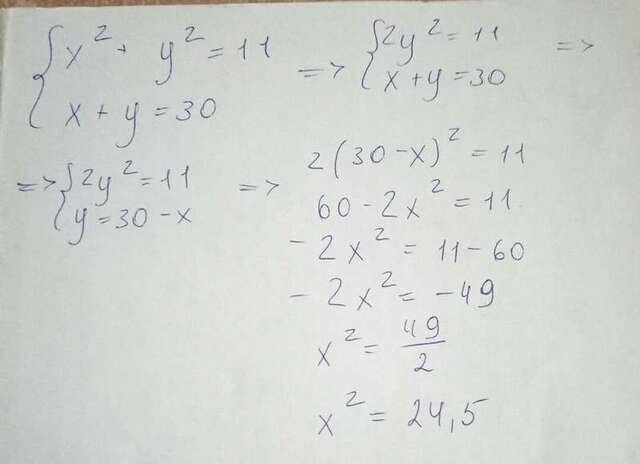 { x² + y² = 11
x + y = 30
=> { 2y² = 11
x + y = 30 =>
=> { 2y² = 11
y = 30 - x =>
2(30 - x)² = 11
60 - 2x² = 11.
- 2x² = 11 - 60
- 2x² = -49
x² = 49/2
x² = 24,5